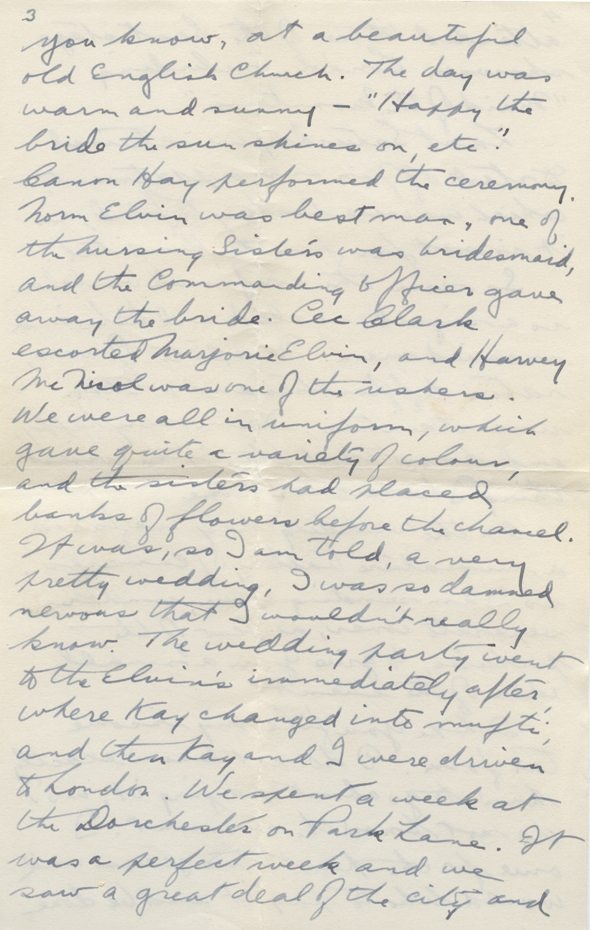 3
you know, at a beautiful
old English Church. The day was
warm and sunny – "Happy the
bride the sun shines on, etc."
Canon Hay performed the ceremony.
Norm Elvin was best man, one of
the nursing Sisters was bridesmaid,
and the Commanding Officer gave
away the bride. Cec Clark
escorted Marjorie Elvin, and Harvey
McNicol was one of the ushers.
We were all in uniform, which
gave quite a variety of colour,
and the sisters had placed
banks of flowers before the chancel.
It was, so I am told, a very
pretty wedding, I was so damned
nervous that I wouldn't really
know. The wedding party went
to the Elvin's immediately after,
where Kay changed into mufti,
and then Kay and I were driven
to London. We spent a week at
the Dorchester on Park Lane. It
was a perfect week and we
saw a great deal of the city and